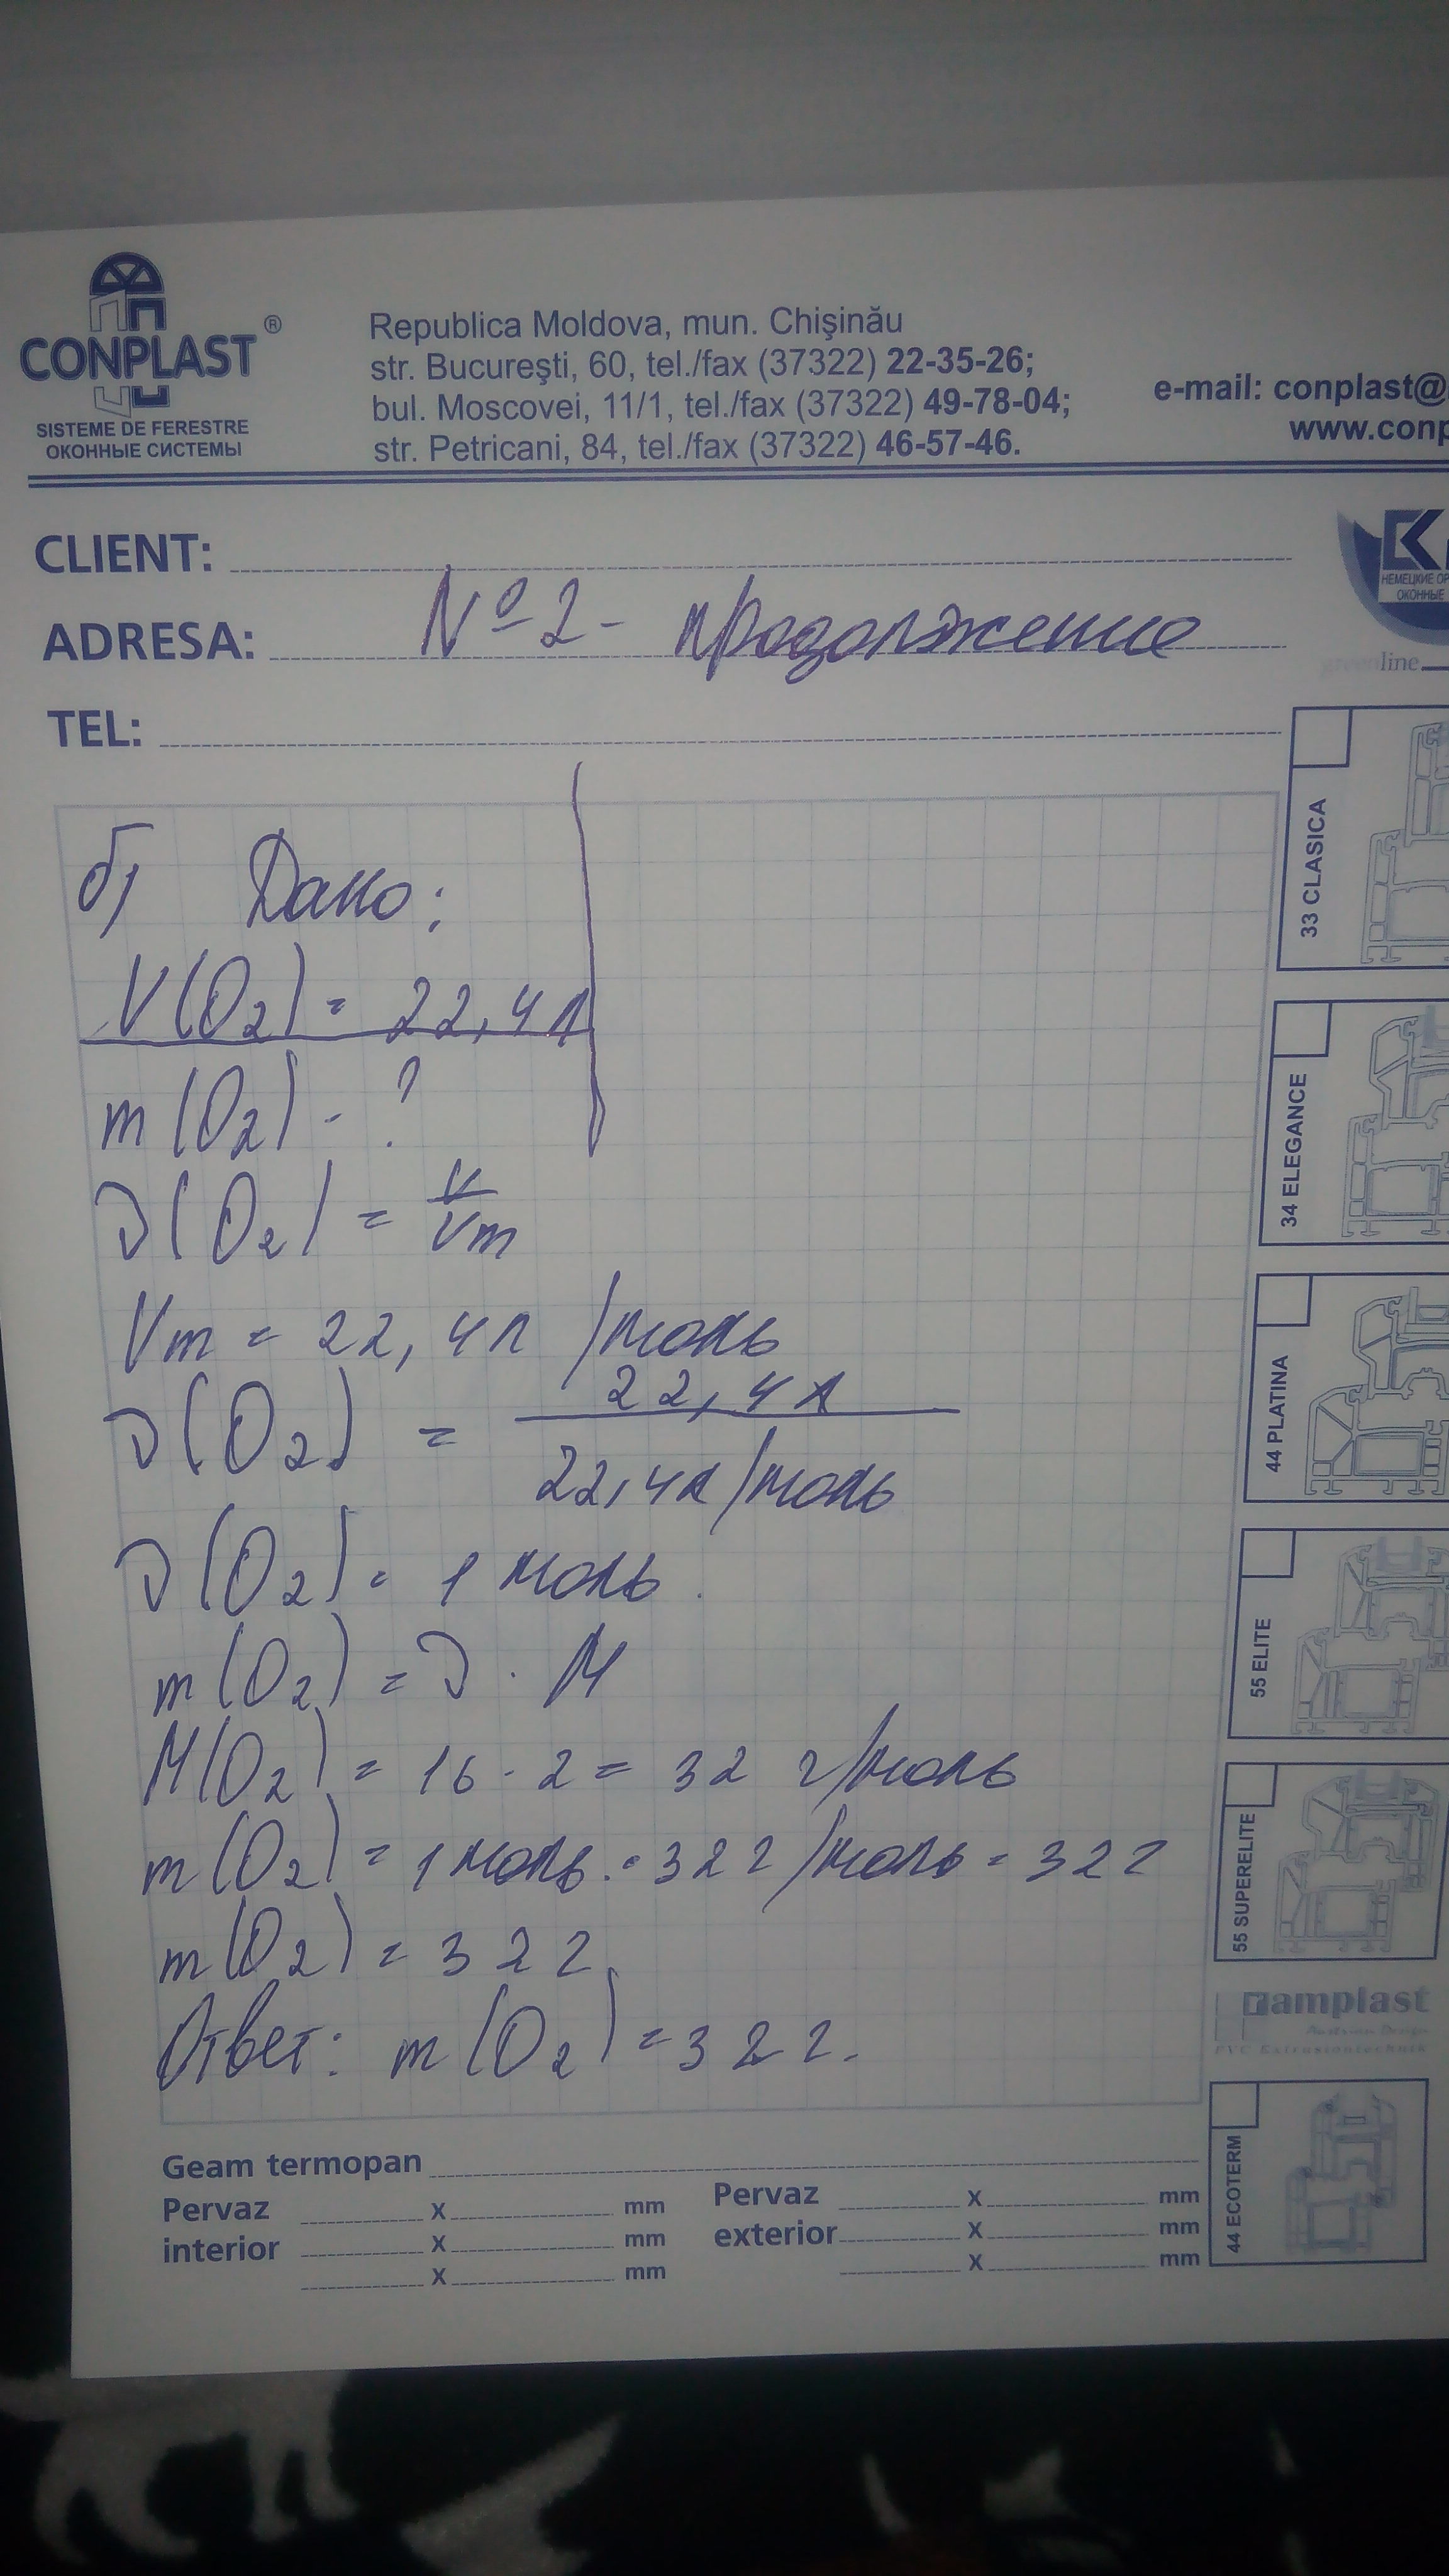 CONPLAST®
SISTEME DE FERESTRE
ОКОННЫЕ СИСТЕМЫ
Republica Moldova, mun. Chişinău
str. Bucureşti, 60, tel./fax (37322) 22-35-26;
bul. Moscovei, 11/1, tel./fax (37322) 49-78-04;
str. Petricani, 84, tel./fax (37322) 46-57-46.
e-mail: conplast@
www.conp
CLIENT:
ADRESA: №2 - продолжение
TEL:
НЕМЕЦКИЕ ОР
ОКОННЫЕ
greenline
б) Дано:
V(O2) = 22,4л
m(O2) - ?
ν(O2) = V/Vm
Vm = 22,4л /моль
ν(O2) = 22,4л / 22,4л/моль
ν(O2) = 1 моль.
m(O2) = ν · M
M(O2) = 16 · 2 = 32 г/моль
m(O2) = 1 моль · 32 г/моль = 32 г
m(O2) = 32 г.
Ответ: m(O2) = 32 г.
33 CLASICA
34 ELEGANCE
44 PLATINA
55 ELITE
55 SUPERELITE
Gamplast
PVC Extrusionstechnik
44 ECOTERM
Geam termopan
Pervaz x mm Pervaz x mm
interior x mm exterior x mm
x mm x mm